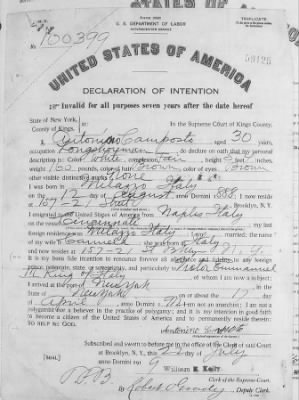 TRIPLICATE
U. S. DEPARTMENT OF LABOR
No. 100399
UNITED STATES OF AMERICA
DECLARATION OF INTENTION
Invalid for all purposes seven years after the date hereof
State of New York,
County of Kings,
In the Supreme Court of Kings County.
I, Antonino Camposto, aged 30 years,
occupation Longshoreman, do declare on oath that my personal
description is: Color White, complexion Fair, height 5 feet inches,
weight 160 pounds, color of hair Brown, color of eyes Brown
other visible distinctive marks None
I was born in Milazzo Italy
on the 12 day of August, anno Domini 1888; I now reside
at 157-21 St., Brooklyn, N. Y.
I emigrated to the United States of America from Naples Italy
on the vessel; my last
foreign residence was Milazzo Italy; I am married; the name
of my wife is Carmela; she was born at Italy
and now resides at 157-21 St Bklyn N Y
It is my bona fide intention to renounce forever all allegiance and fidelity to any foreign
prince, potentate, state, or sovereignty, and particularly to Victor Emmanuel
III King of Italy, of whom I am now a subject;
I arrived at the port of New York, in the
State of New York, on or about the 12 day
of April, anno Domini; I am not an anarchist; I am not a
polygamist nor a believer in the practice of polygamy; and it is my intention in good faith
to become a citizen of the United States of America and to permanently reside therein:
SO HELP ME GOD.
Antonino
Subscribed and sworn to before me in the office of the Clerk of said Court
at Brooklyn, N. Y., this day of July
anno Domini 19
[SEAL]
William E. Kelly
Clerk of the Supreme Court.
Deputy Clerk.